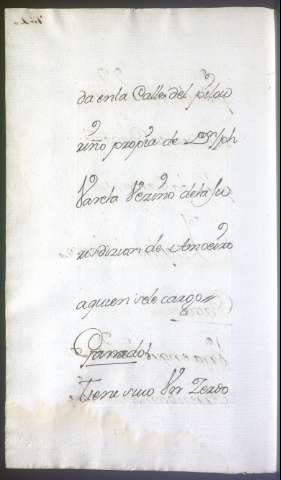 da en la Calle del pelou
riño propia de Joseph
Varela Vezino de la Ju
risdizion de Amoeiro
a quien se le cargo
Ganados
Tiene suio Un Zerdo